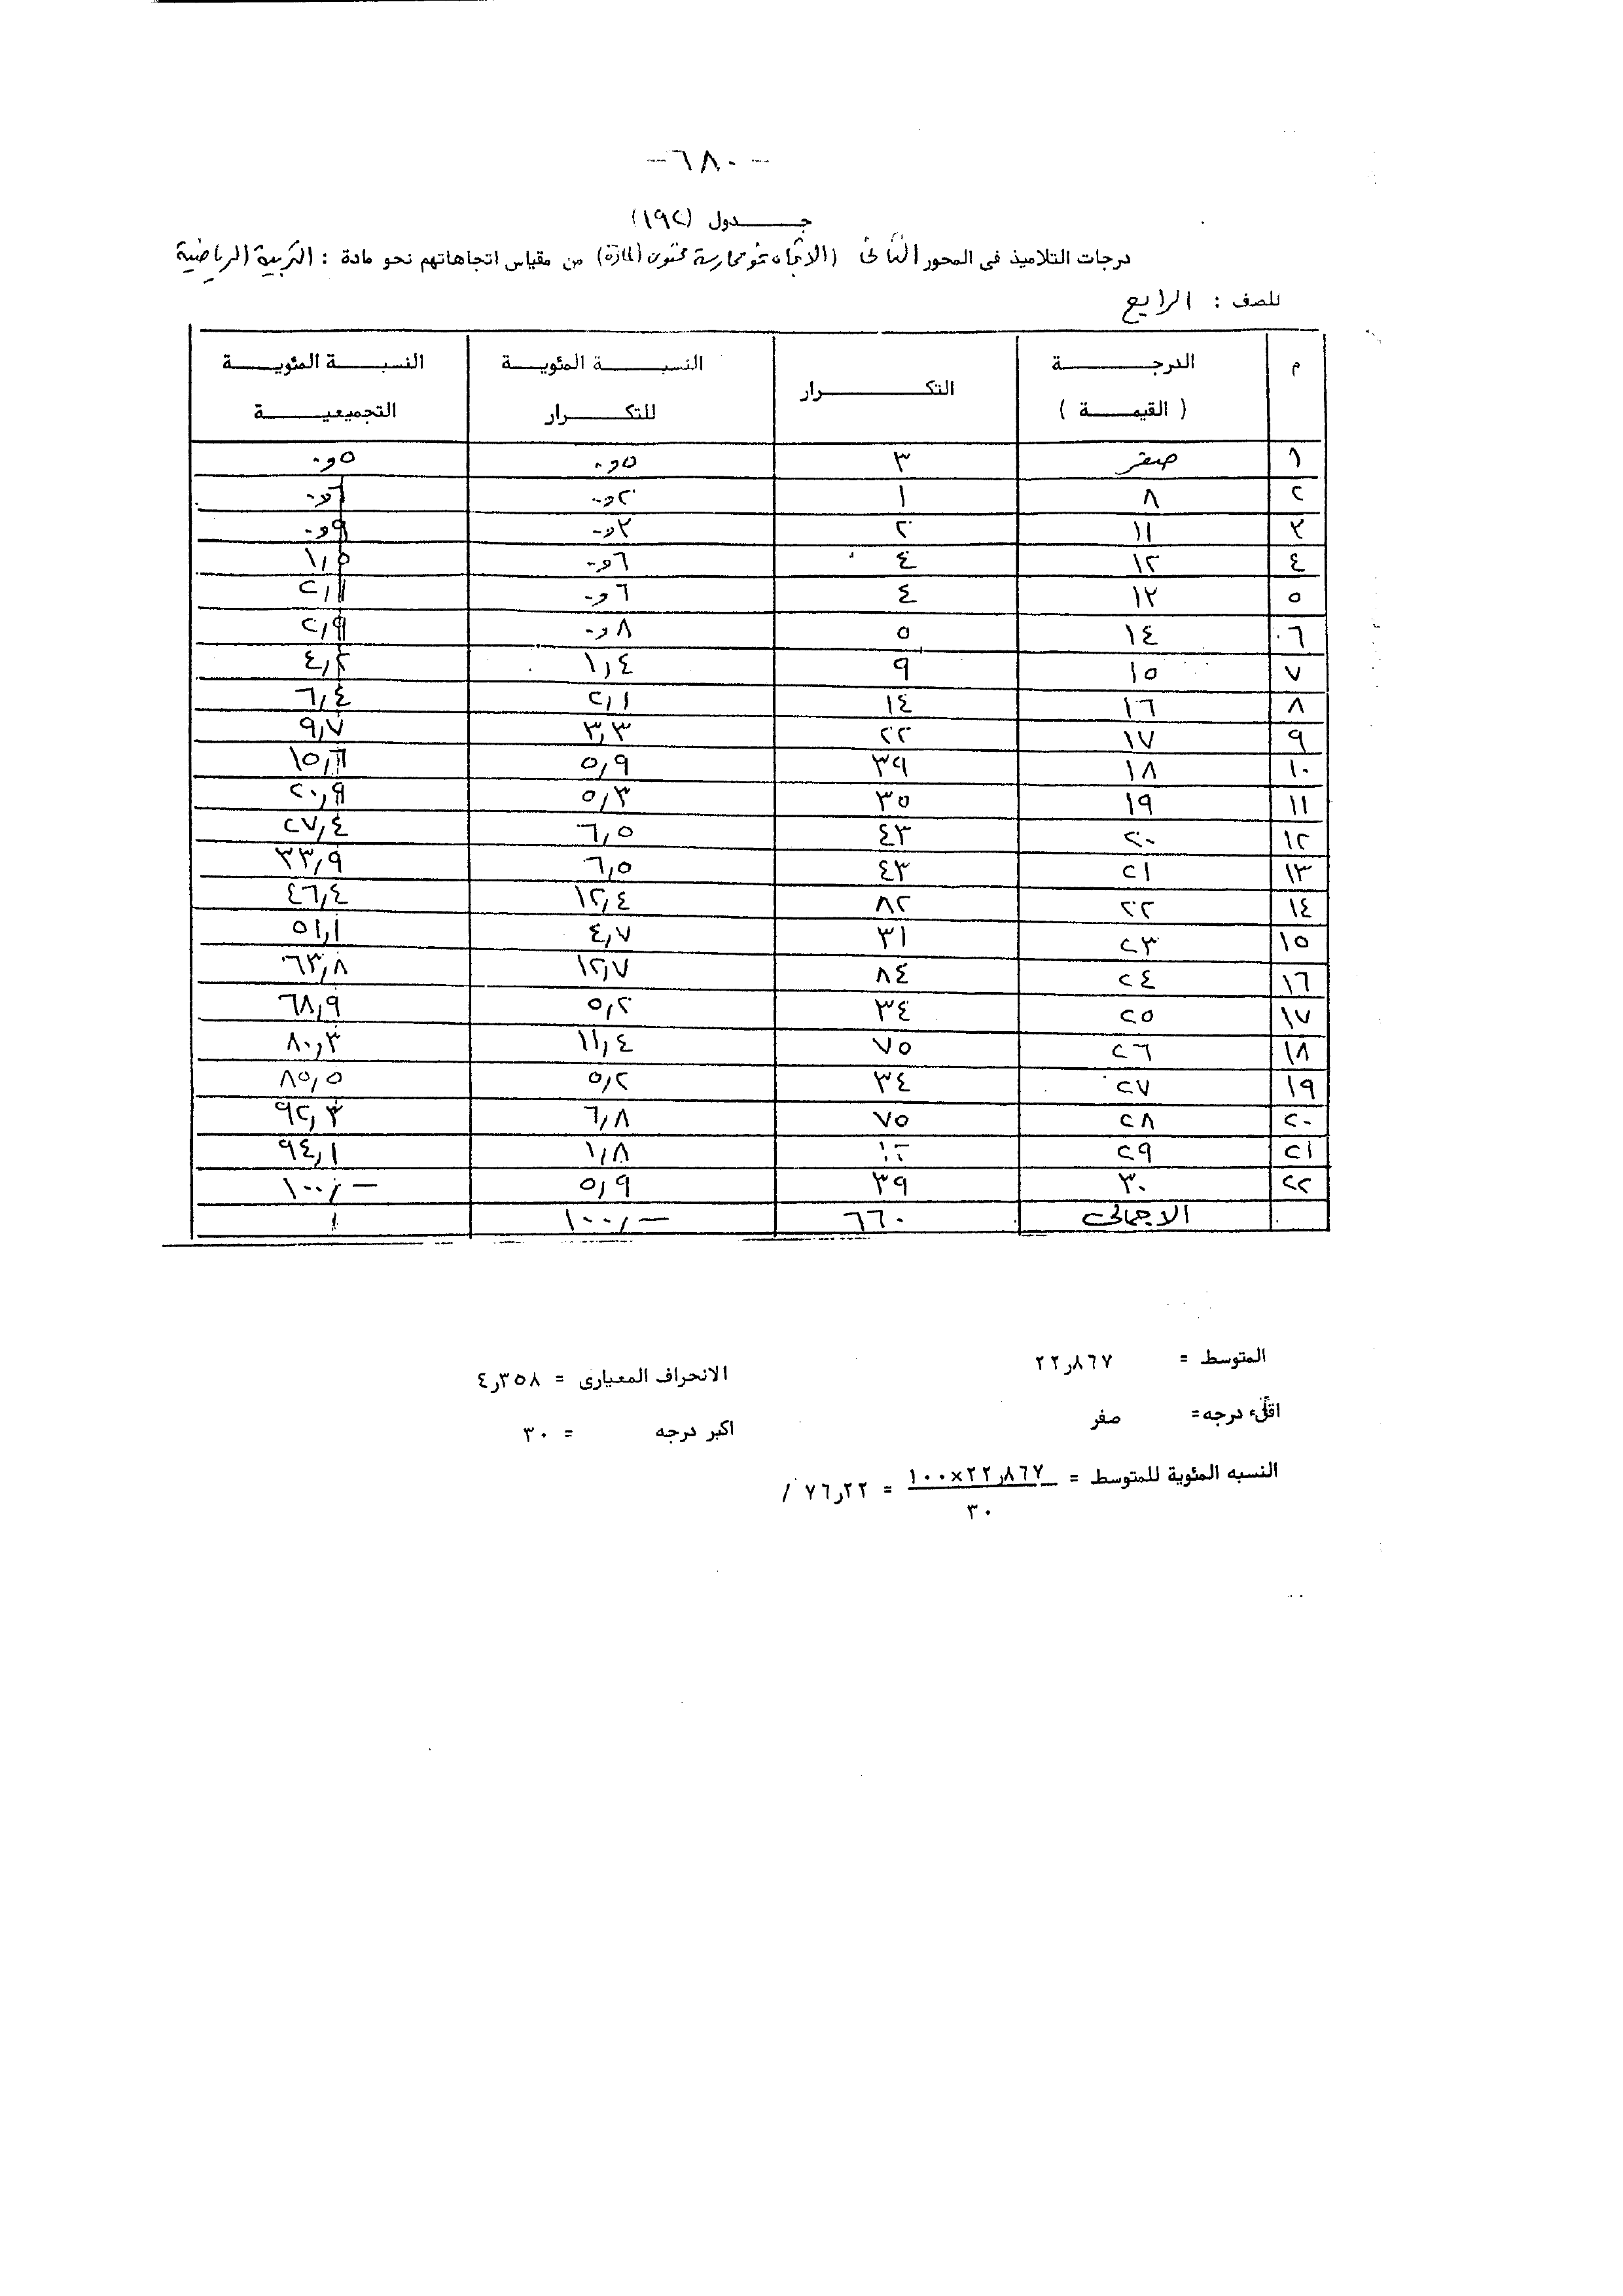 -٦٨٠-
جـــــدول (١٩٢)
درجات التلاميذ فى المحور الثانى (الاتجاه نحو ممارسة محتوى المادة) من مقياس اتجاهاتهم نحو مادة : التربية الرياضية
للصف : الرابع
م الدرجـــــة ( القيمـــة ) التكـــــرار النسبـــــة المئويـــة للتكـــــرار النسبـــــة المئويـــة التجميعيـــة
١ صفر ٣ ٥و٠ ٥و٠
٢ ٨ ١ ٢و٠ ٦و٠
٣ ١١ ٢ ٣و٠ ٩و٠
٤ ١٢ ٤ ٦و٠ ١,٥
٥ ١٣ ٤ ٦و٠ ٢,١
٦ ١٤ ٥ ٨و٠ ٢,٩
٧ ١٥ ٩ ١,٤ ٤,٢
٨ ١٦ ١٤ ٢,١ ٦,٤
٩ ١٧ ٢٢ ٣,٣ ٩,٧
١٠ ١٨ ٣٩ ٥,٩ ١٥,٦
١١ ١٩ ٣٥ ٥,٣ ٢٠,٩
١٢ ٢٠ ٤٣ ٦,٥ ٢٧,٤
١٣ ٢١ ٤٣ ٦,٥ ٣٣,٩
١٤ ٢٢ ٨٢ ١٢,٤ ٤٦,٤
١٥ ٢٣ ٣١ ٤,٧ ٥١,١
١٦ ٢٤ ٨٤ ١٢,٧ ٦٣,٨
١٧ ٢٥ ٣٤ ٥,٢ ٦٨,٩
١٨ ٢٦ ٧٥ ١١,٤ ٨٠,٣
١٩ ٢٧ ٣٤ ٥,٢ ٨٥,٥
٢٠ ٢٨ ٧٥ ٦,٨ ٩٢,٣
٢١ ٢٩ ١,٨ ٩٤,١
٢٢ ٣٠ ٣٩ ٥,٩ ١٠٠,–
الاجمالى ٦٦٠ ١٠٠,– /
المتوسط = ٢٢٫٨٦٧ الانحراف المعيارى = ٤٫٣٥٨
اقلء درجه= صفر اكبر درجه = ٣٠
النسبه المئوية للمتوسط = ٢٢٫٨٦٧×١٠٠ = ٧٦٫٢٢ /
٣٠